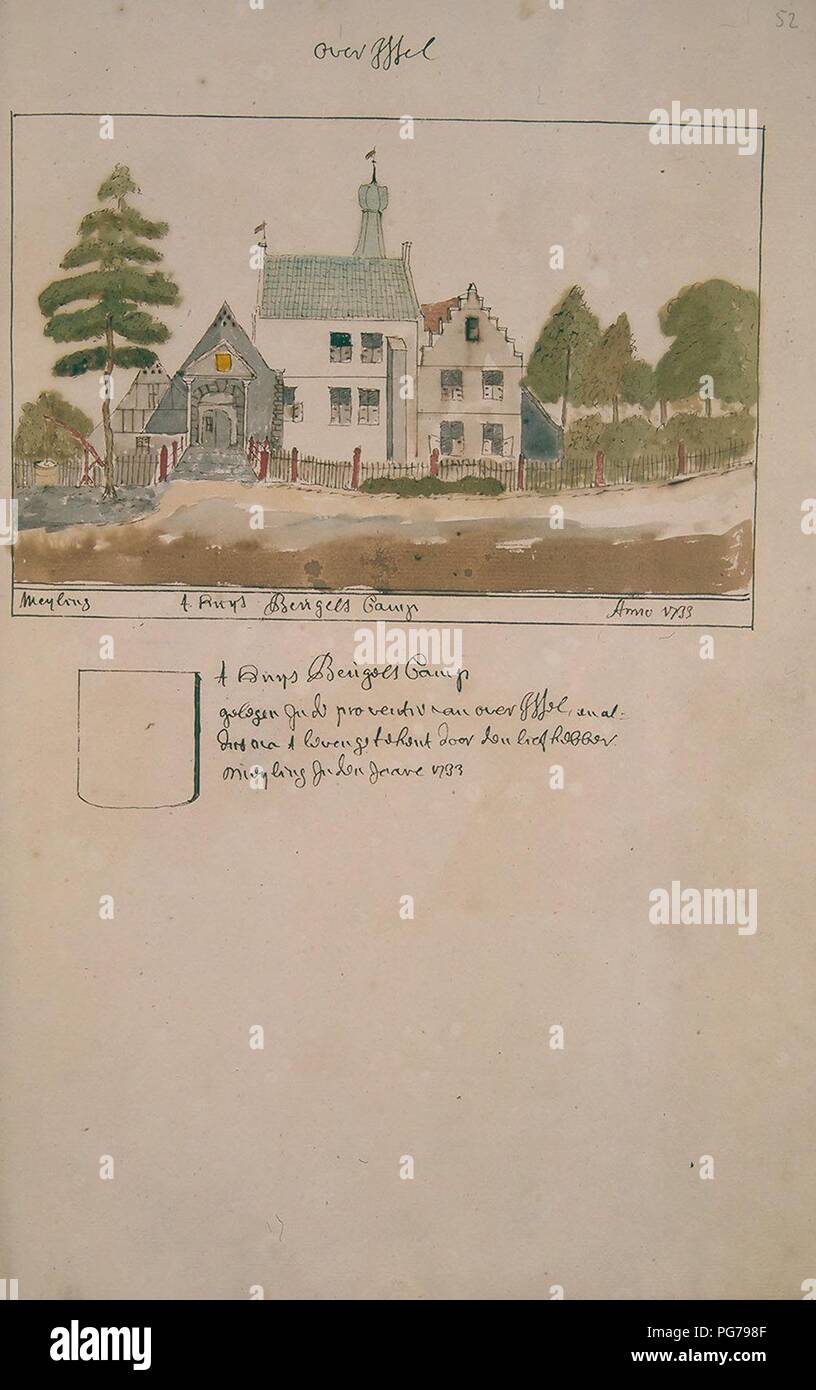 52
over Yssel
Meyling 't Huys Beugels Camp Anno 1733
't Huys Beugels Camp
gelegen Jn de proventie van over Yssel, en al-
dus na 't leven getekent door den liefhebber
Meyling Jn den Jaare 1733
alamy
alamy
alamy
Image ID: PG798F
www.alamy.com